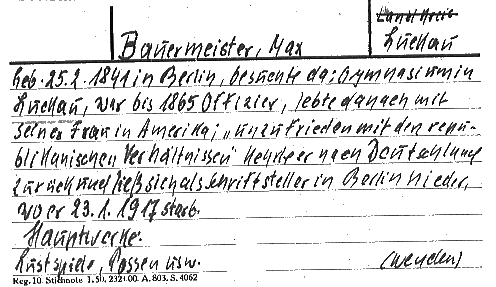 Land Kreis
Luckau
Bauermeister, Max
Geb. 25.2.1841 in Berlin, besuchte das Gymnasium in
Luckau, war bis 1865 Offizier, lebte danach mit
seiner Frau in Amerika; „unzufrieden mit den repu-
blikanischen Verhältnissen" kehrte er nach Deutschland
zurück und ließ sich als Schriftsteller in Berlin nieder,
wo er 23.1.1917 starb.
Hauptwerke.
Lustspiele, Possen usw.
(wenden)
Reg. 10. Stichnote 1. 50. 232100. A. 803. S. 4062